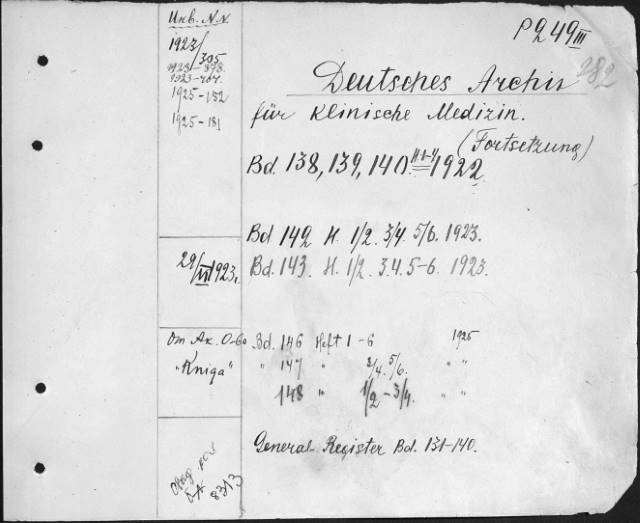 P249III
282
Deutsches Archiv
für Klinische Medizin.
(Fortsetzung)
Bd. 138, 139, 140. H 1-4 1922.
Bd 142 H. 1/2. 3/4. 5/6. 1923.
Bd. 143. H. 1/2. 3.4. 5-6. 1923.
Bd. 146 Heft 1-6 1925
" 147 " 3/4. 5/6. " "
148 " 1/2 - 3/4. " "
General-Register Bd. 131-140.
Inv. N.N.
1923/305
1923-878.
1923-
1925-152
1925-181
29/VII 1923.
От Ак. О-ва
"Kniga"
8313